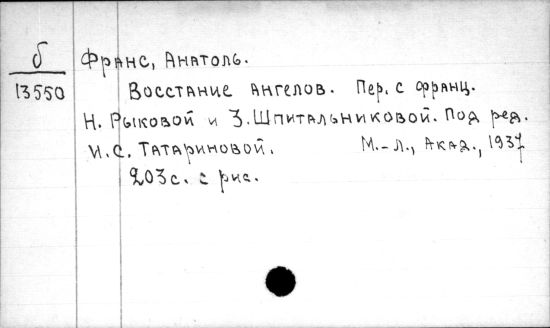 б
13550
Франс, Анатоль.
Восстание ангелов. Пер. с франц.
Н. Рыковой и З. Шпитальниковой. Под ред.
И.С. Татариновой. М.-Л., Акад., 1937
203 с. с рис.